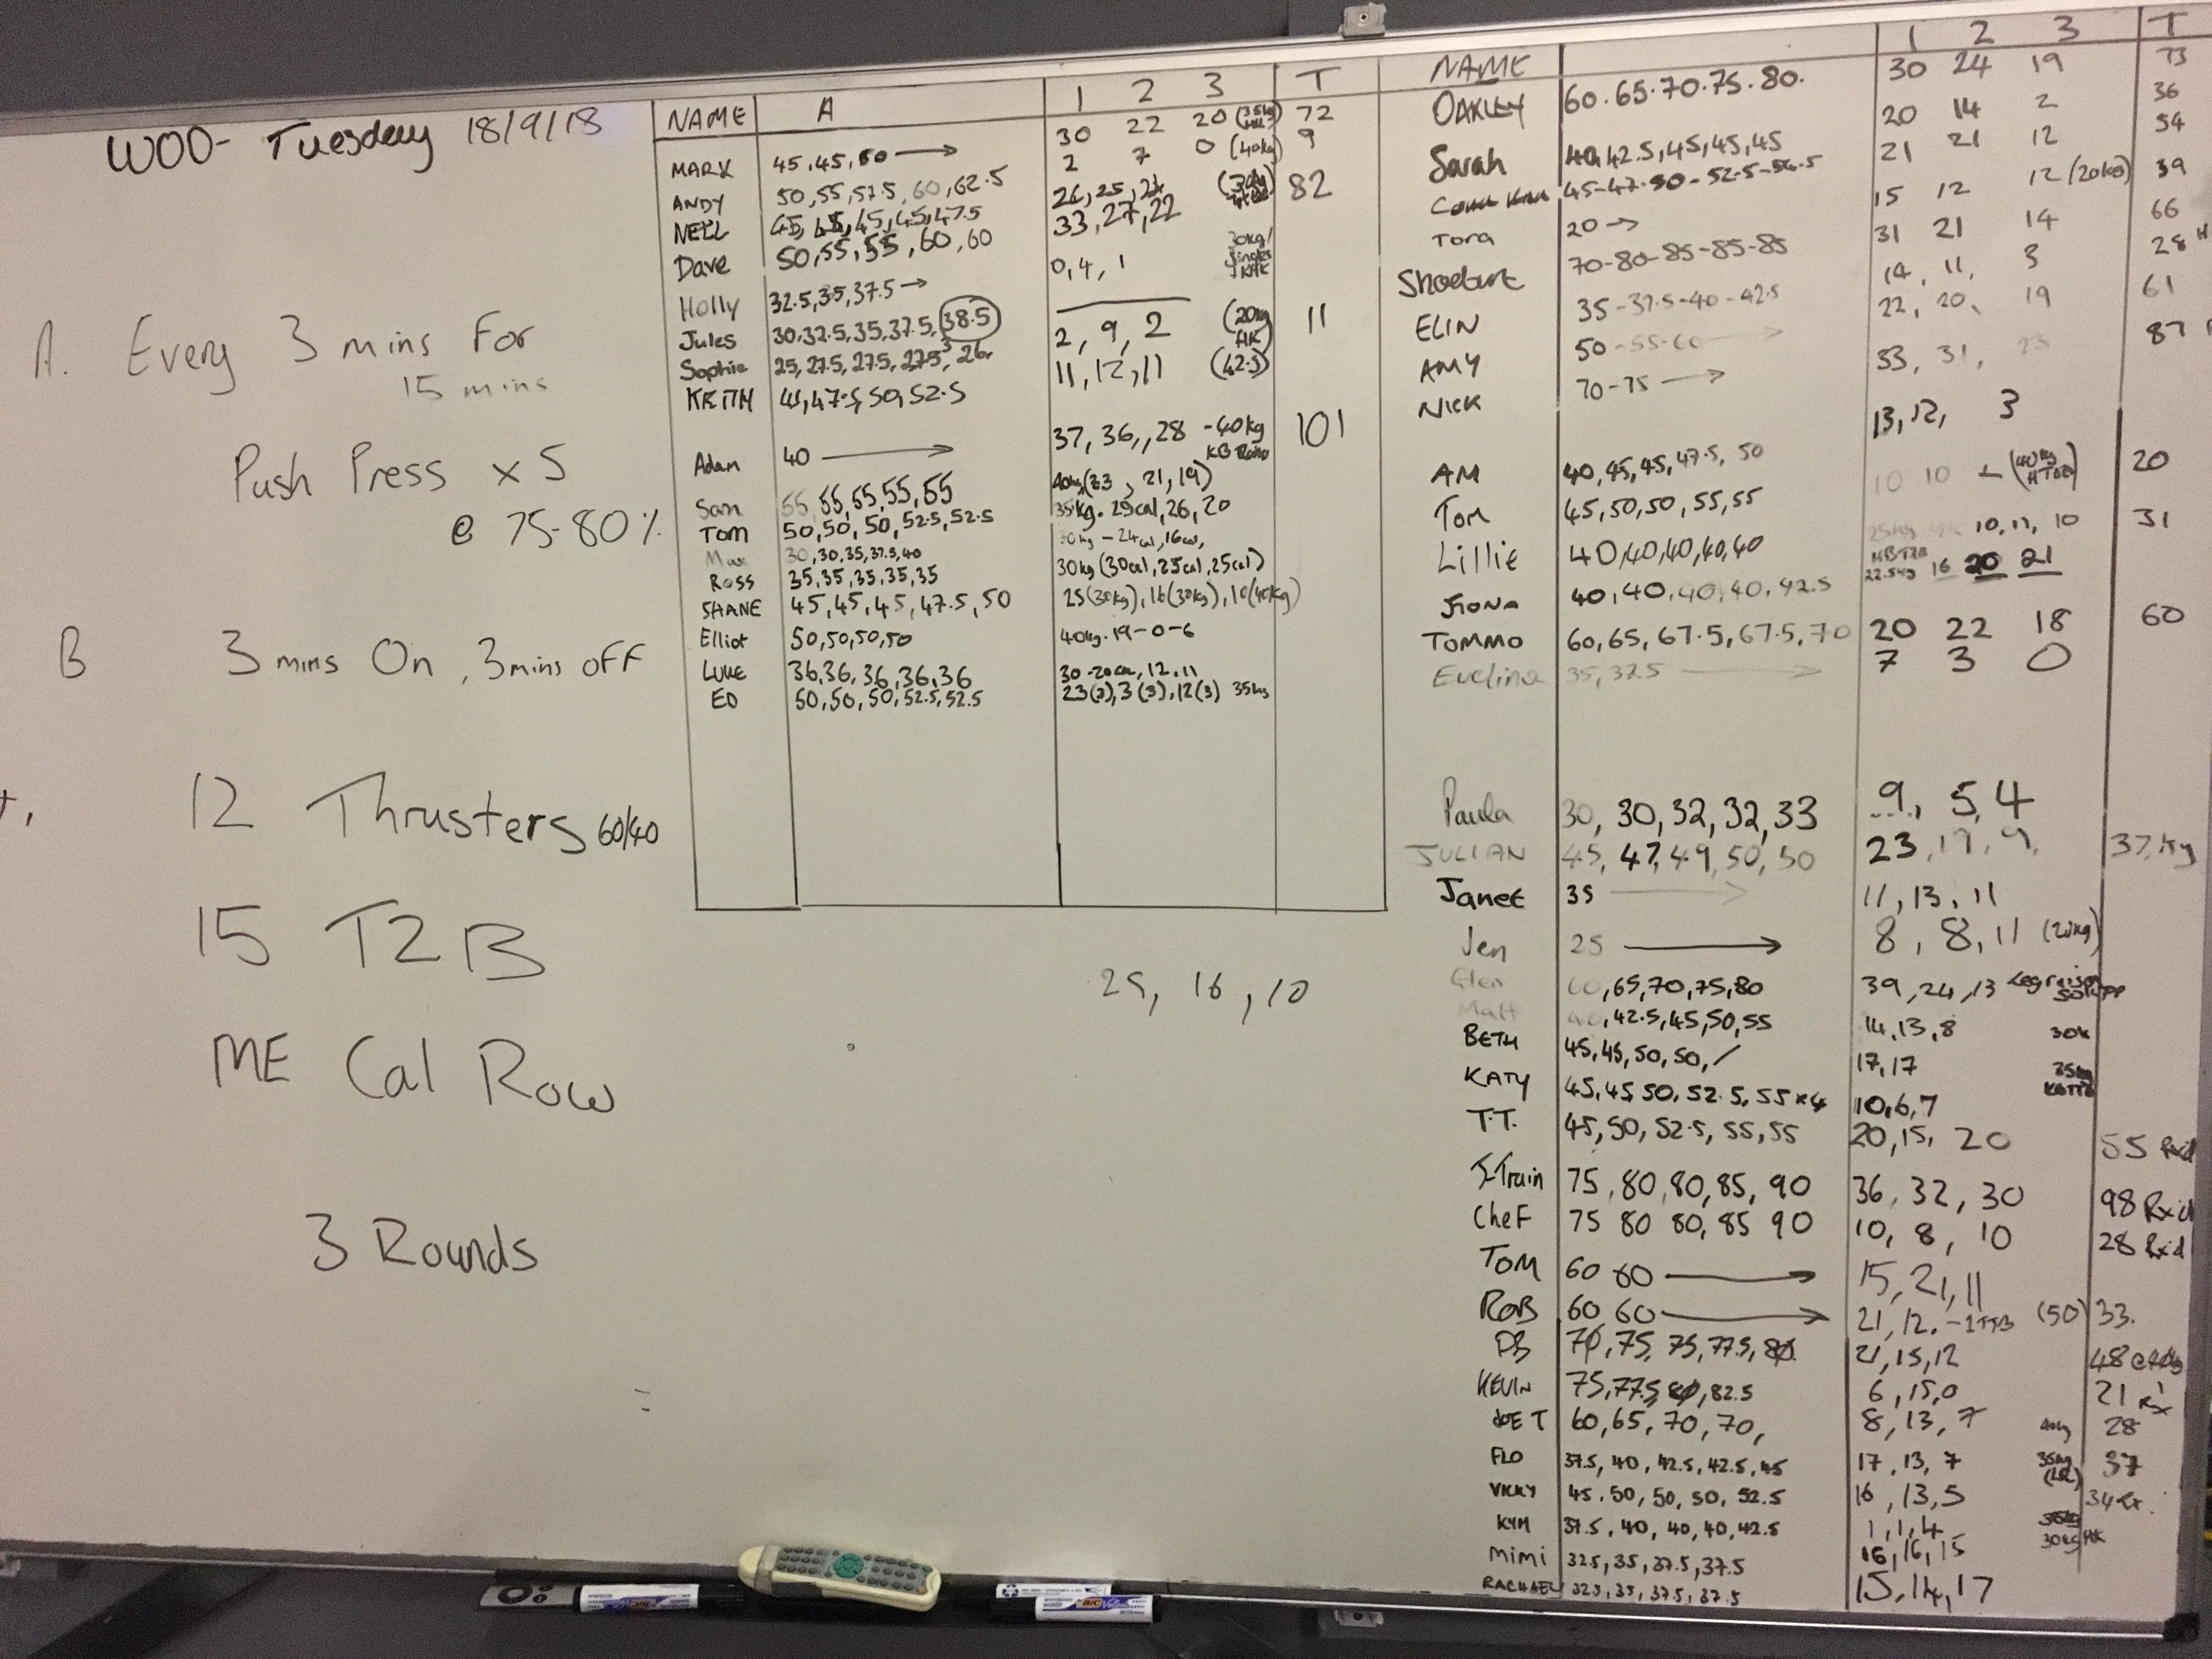 WOD- Tuesday 18/9/18
A. Every 3 mins For
15 mins
Push Press x 5
@ 75-80%
B 3 mins On, 3 mins off
12 Thrusters 60/40
15 T2B
ME Cal Row
3 Rounds
NAME A 1 2 3 T
MARK 45,45,50 → 30 22 20 72
ANDY 50,55,57.5,60,62.5 2 7 0 (40kg) 9
NEIL 45,45,45,45,47.5 26,25,21 82
Dave 50,55,55,60,60 33,27,22
Holly 32.5,35,37.5 → 0,4,1 30kg/ Singles
Jules 30,32.5,35,37.5,38.5
Sophie 25,27.5,27.5,27.5, 26 2, 9, 2 (20kg HK) 11
KEITH 47.5,50,52.5 11,12,11 (42.5)
Adam 40 → 37,36,,28 -40kg 101
Sam 55,55,55,55,55 40kg(33, 21,19)
Tom 50,50,50,52.5,52.5 35kg. 29cal,26,20
Max 30,30,35,37.5,40 30kg - 24cal,16cal,
Ross 35,35,35,35,35 30kg (30cal,25cal,25cal)
SHANE 45,45,45,47.5,50 25(30kg),16(30kg),10(40kg)
Elliot 50,50,50,50 40kg. 19-0-6
LUKE 36,36,36,36,36 30-20cal,12,11
ED 50,50,50,52.5,52.5 23(3),3(3),12(3) 35kg
25, 16, 10
NAME 1 2 3 T
OAKLEY 60.65.70.75.80. 30 24 19 73
Sarah 40,42.5,45,45,45 20 14 2 36
45-47-50-52.5-56.5 21 21 12 54
Tora 20 → 15 12 12 (20kg) 39
Shoebart 70-80-85-85-85 31 21 14 66
ELIN 35-37.5-40-42.5 14, 11, 3 28
AMY 50-55-60 → 22, 20, 19 61
NICK 70-75 → 33, 31, 23 87
AM 40,45,45,47.5,50 13,12, 3
Tom 45,50,50,55,55 10 10 - 20
Lillie 40,40,40,40,40 25kg 10,11,10 31
Fiona 40,40,40,40,42.5 22.5kg 16 20 21
TOMMO 60,65,67.5,67.5,70 20 22 18 60
Evelina 35,37.5 → 7 3 0
Paula 30,30,32,32,33 9, 5,4
JULIAN 45,47,49,50,50 23,17,9, 37.kg
Janet 35 → 11,13,11
Jen 25 → 8, 8,11 (20kg)
Glen 60,65,70,75,80 39,24,13
Matt 40,42.5,45,50,55 14,13,8 30k
BETH 45,45,50,50,/ 17,17 35kg
KATY 45,45 50,52.5,55x4 10,6,7
T.T. 45,50,52.5,55,55 20,15, 20 55 Rxd
J-Train 75,80,80,85,90 36,32,30 98 Rx'd
CheF 75 80 80,85 90 10, 8, 10 28 Rx'd
TOM 60 60 → 15,21,11
ROB 60 60 → 21,12.-1TTB (50) 33.
PB 70,75,75,77.5,80. 21,15,12 48
KEVIN 75,77.5,80,82.5 6,15,0 21 Rx
JOE T 60,65,70,70, 8,13,7 40kg 28
FLO 37.5,40,42.5,42.5,45 17,13,7 35kg (LR) 37
VICKY 45.50,50,50,52.5 16,13,5 34Rx.
KYM 37.5,40,40,40,42.5 1,1,4
Mimi 32.5,35,37.5,37.5 16,16,15 30kg HK
RACHAEL 32.5,35,37.5,37.5 15,14,17